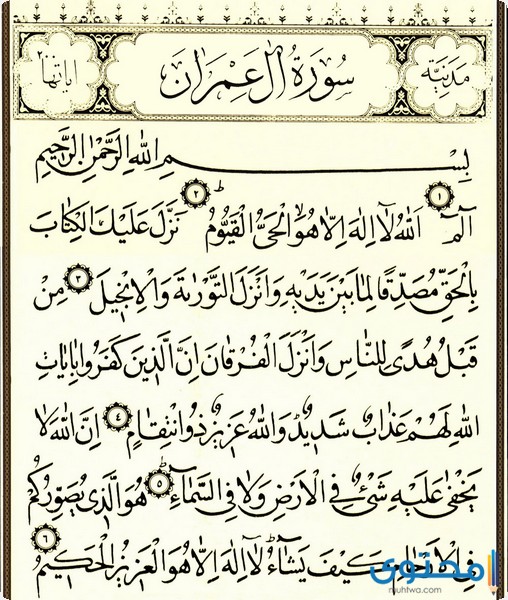 مَدَنِيَّة سُورَةُ اٰلِ عِمْرَان اٰيَاتُهَا ٢
بِسْمِ اللّٰهِ الرَّحْمٰنِ الرَّحِيمِ
الٓمٓ ١ اَللّٰهُ لَٓا اِلٰهَ اِلَّا هُوَ الْحَىُّ الْقَيُّومُ ط ٢ نَزَّلَ عَلَيْكَ الْكِتَابَ
بِالْحَقِّ مُصَدِّقًا لِمَا بَيْنَ يَدَيْهِ وَاَنْزَلَ التَّوْرٰيةَ وَالْاِنْجِيلَ ٣ مِنْ
قَبْلُ هُدًى لِلنَّاسِ وَاَنْزَلَ الْفُرْقَانَ اِنَّ الَّذِينَ كَفَرُوا بِاٰيَاتِ
اللّٰهِ لَهُمْ عَذَابٌ شَدِيدٌ وَاللّٰهُ عَزِيزٌ ذُو انْتِقَامٍ ٤ اِنَّ اللّٰهَ لَا
يَخْفٰى عَلَيْهِ شَىْءٌ فِى الْاَرْضِ وَلَا فِى السَّمَٓاءِ ط ٥ هُوَ الَّذِى يُصَوِّرُكُمْ
فِى الْاَرْحَامِ كَيْفَ يَشَٓاءُ لَٓا اِلٰهَ اِلَّا هُوَ الْعَزِيزُ الْحَكِيمُ ٦
محتوى
muhtwa.com